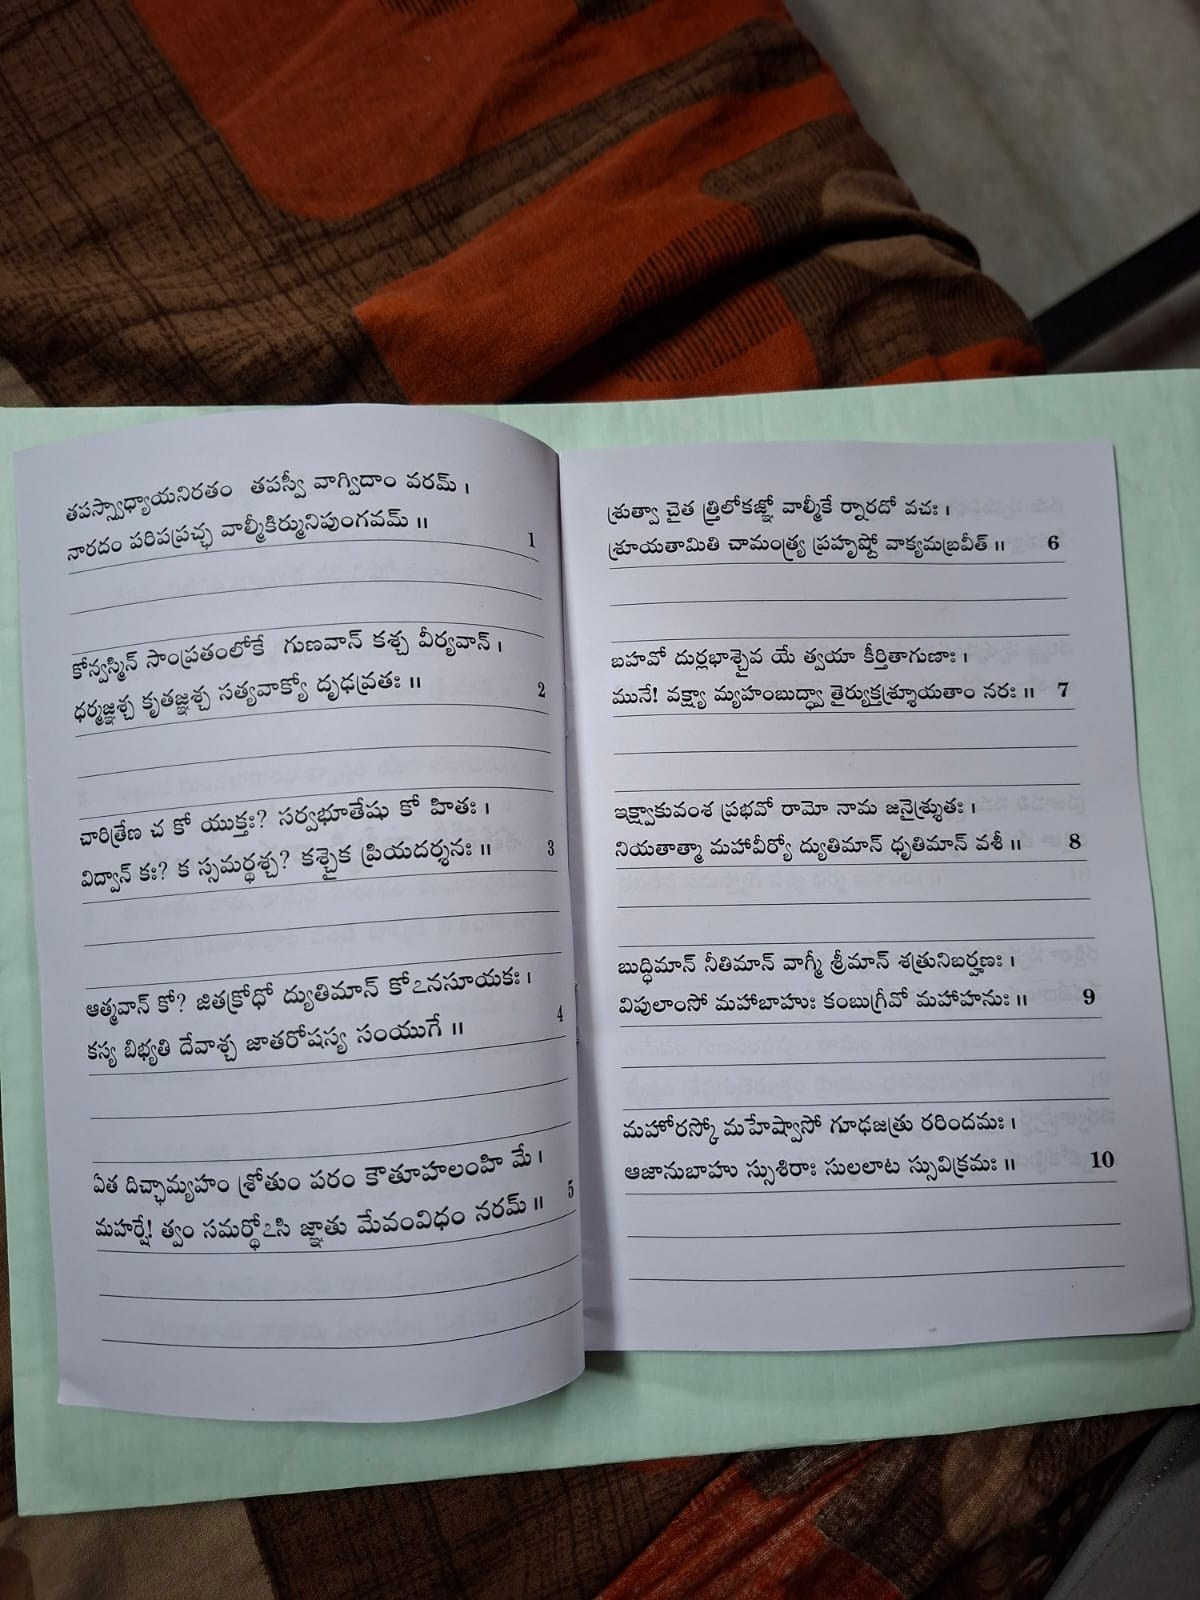 తపస్స్వాధ్యాయనిరతం తపస్వీ వాగ్విదాం వరమ్ ।
నారదం పరిపప్రచ్ఛ వాల్మీకిర్మునిపుంగవమ్ ॥ 1
కోన్వస్మిన్ సాంప్రతంలోకే గుణవాన్ కశ్చ వీర్యవాన్ ।
ధర్మజ్ఞశ్చ కృతజ్ఞశ్చ సత్యవాక్యో దృఢవ్రతః ॥ 2
చారిత్రేణ చ కో యుక్తః? సర్వభూతేషు కో హితః ।
విద్వాన్ కః? క స్సమర్థశ్చ? కశ్చైక ప్రియదర్శనః ॥ 3
ఆత్మవాన్ కో? జితక్రోధో ద్యుతిమాన్ కోఽనసూయకః ।
కస్య బిభ్యతి దేవాశ్చ జాతరోషస్య సంయుగే ॥ 4
ఏత దిచ్ఛామ్యహం శ్రోతుం పరం కౌతూహలంహి మే ।
మహర్షే! త్వం సమర్థోఽసి జ్ఞాతు మేవంవిధం నరమ్ ॥ 5
శ్రుత్వా చైత త్త్రిలోకజ్ఞో వాల్మీకే ర్నారదో వచః ।
శ్రూయతామితి చామంత్ర్య ప్రహృష్టో వాక్యమబ్రవీత్ ॥ 6
బహవో దుర్లభాశ్చైవ యే త్వయా కీర్తితాగుణాః ।
మునే! వక్ష్యా మ్యహంబుద్ధ్వా తైర్యుక్తశ్శ్రూయతాం నరః ॥ 7
ఇక్ష్వాకువంశ ప్రభవో రామో నామ జనైశ్శ్రుతః ।
నియతాత్మా మహావీర్యో ద్యుతిమాన్ ధృతిమాన్ వశీ ॥ 8
బుద్ధిమాన్ నీతిమాన్ వాగ్మీ శ్రీమాన్ శత్రునిబర్హణః ।
విపులాంసో మహాబాహుః కంబుగ్రీవో మహాహనుః ॥ 9
మహోరస్కో మహేష్వాసో గూఢజత్రు రరిందమః ।
ఆజానుబాహు స్సుశిరాః సులలాట స్సువిక్రమః ॥ 10